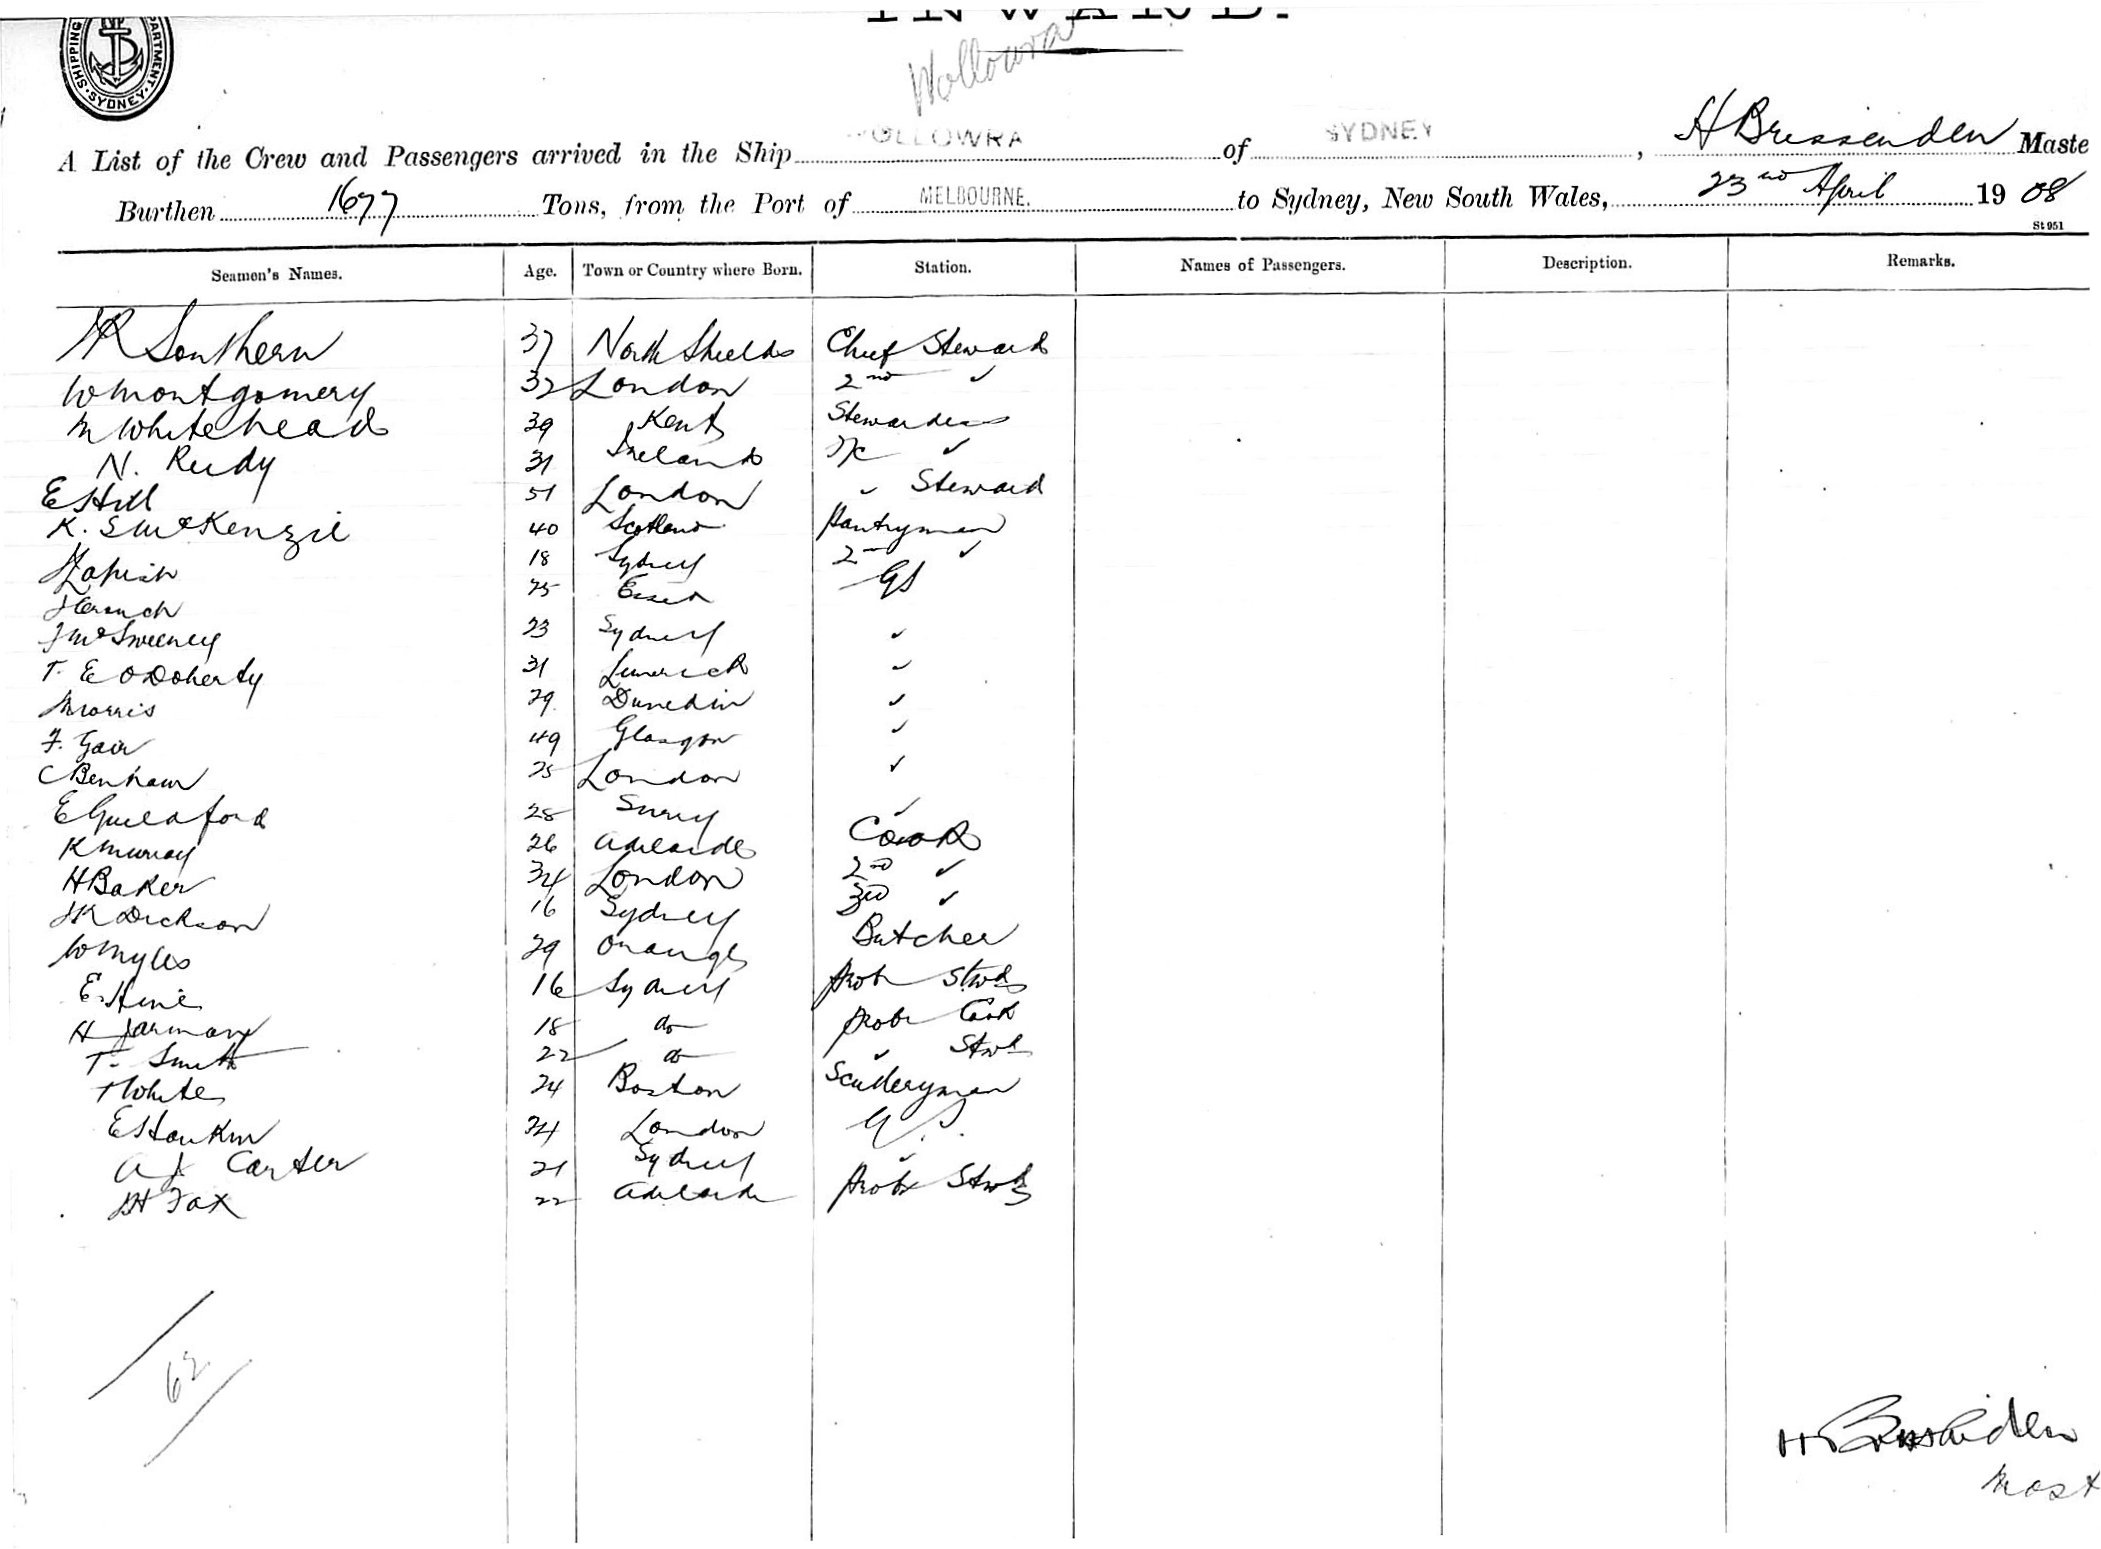 SHIPPING DEPARTMENT. SYDNEY
INWARD.
Wollowra
WOLLOWRA
SYDNEY
A List of the Crew and Passengers arrived in the Ship of , H Brissenden Maste
Burthen 1677 Tons, from the Port of MELBOURNE. to Sydney, New South Wales, 23rd April 1908
St 951
Seamen's Names. Age. Town or Country where Born. Station. Names of Passengers. Description. Remarks.
Southern 37 North Shields Chief Steward
W Montgomery 32 London 2nd ✓
M Whitehead 39 Kent Stewardess
N. Reidy 31 Ireland ✓
E Hill 51 London " Steward
K. S McKenzie 40 Scotland Pantryman
18 Sydney 2nd ✓
25 Essex GS
J McSweeney 23 Sydney ✓
T. E O Doherty 31 Limerick ✓
Morris 29 Dunedin ✓
F. Gair 49 Glasgow ✓
C Benham 25 London ✓
E Guildford 28 Surry ✓
K Murray 26 Adelaide Cook
H Baker 34 London 2nd ✓
Dickson 16 Sydney 3rd ✓
W Myles 29 Orange Butcher
E. Hine 16 Sydney Prob Stwd
H Jarman 18 do Prob Cook
T. Smith 22 do ✓ Stwd
White 24 Boston Sculleryman
E Hankin 34 London G.S.
A J Carter 21 Sydney ✓
H Fox 22 Adelaide Prob Stwd
62
H Brissenden
Mast